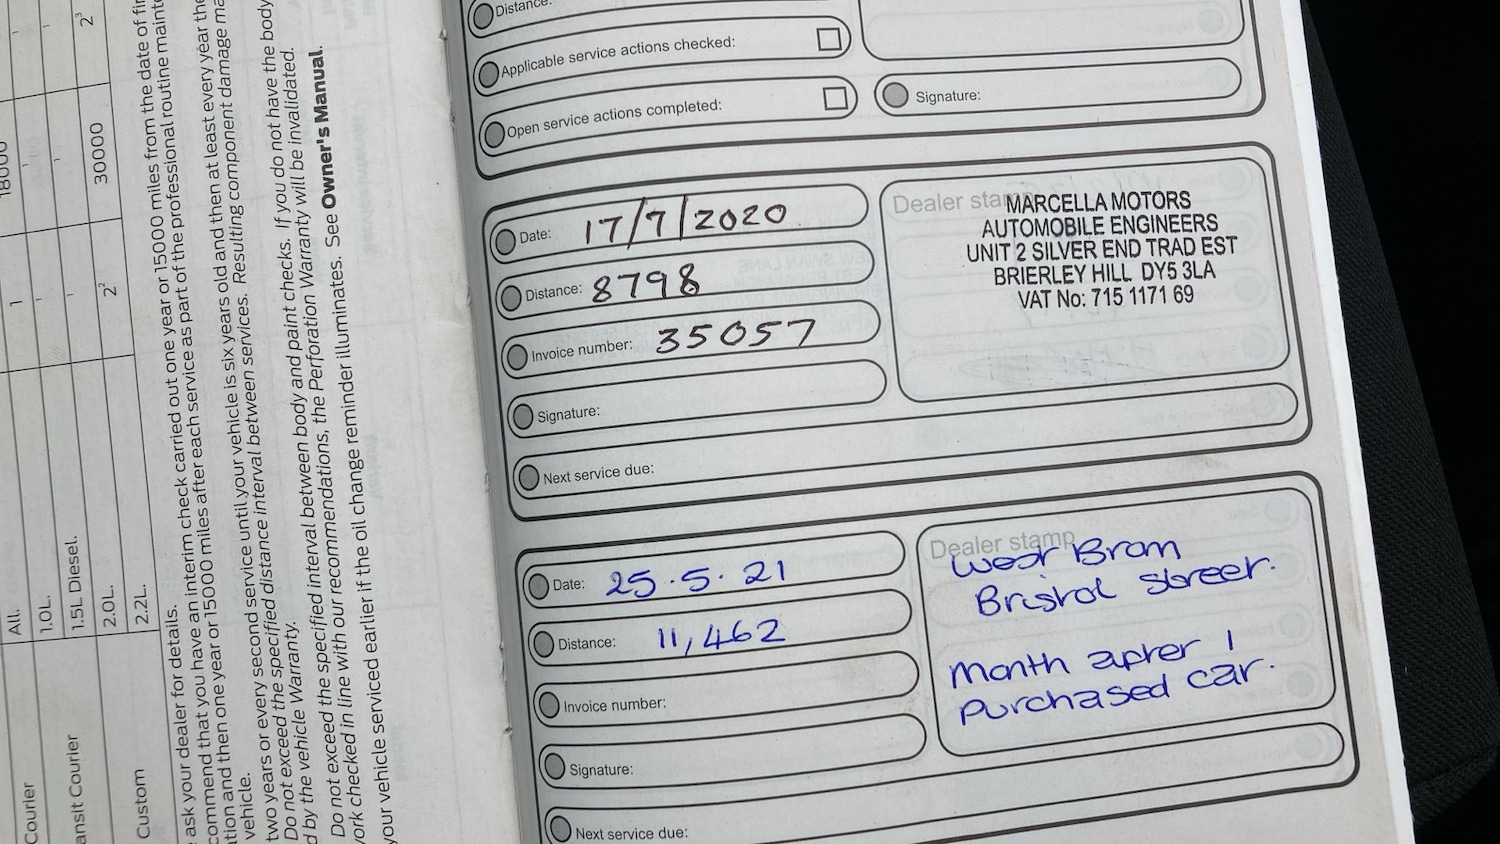 All.
1
18000
1.0L.
1.5L Diesel.
2.0L.
2²
30000
2³
2.2L.
Courier
ansit Courier
Custom
ask your dealer for details.
commend that you have an interim check carried out one year or 15000 miles from the date of
tion and then one year or 15000 miles after each service as part of the professional routine
vehicle.
two years or every second service until your vehicle is six years old and then at least every year
Do not exceed the specified distance interval between services. Resulting component damage
by the vehicle Warranty.
Do not exceed the specified interval between body and paint checks. If you do not have the body
work checked in line with our recommendations, the Perforation Warranty will be invalidated.
your vehicle serviced earlier if the oil change reminder illuminates. See Owner's Manual.
Distance:
Applicable service actions checked:
Open service actions completed:
Signature:
Date: 17/7/2020
Distance: 8798
Invoice number: 35057
Signature:
Next service due:
Dealer stamp
MARCELLA MOTORS
AUTOMOBILE ENGINEERS
UNIT 2 SILVER END TRAD EST
BRIERLEY HILL DY5 3LA
VAT No: 715 1171 69
Date: 25.5.21
Distance: 11,462
Invoice number:
Signature:
Next service due:
Dealer stamp
West Brom
Bristol Street.
Month after I
purchased car.